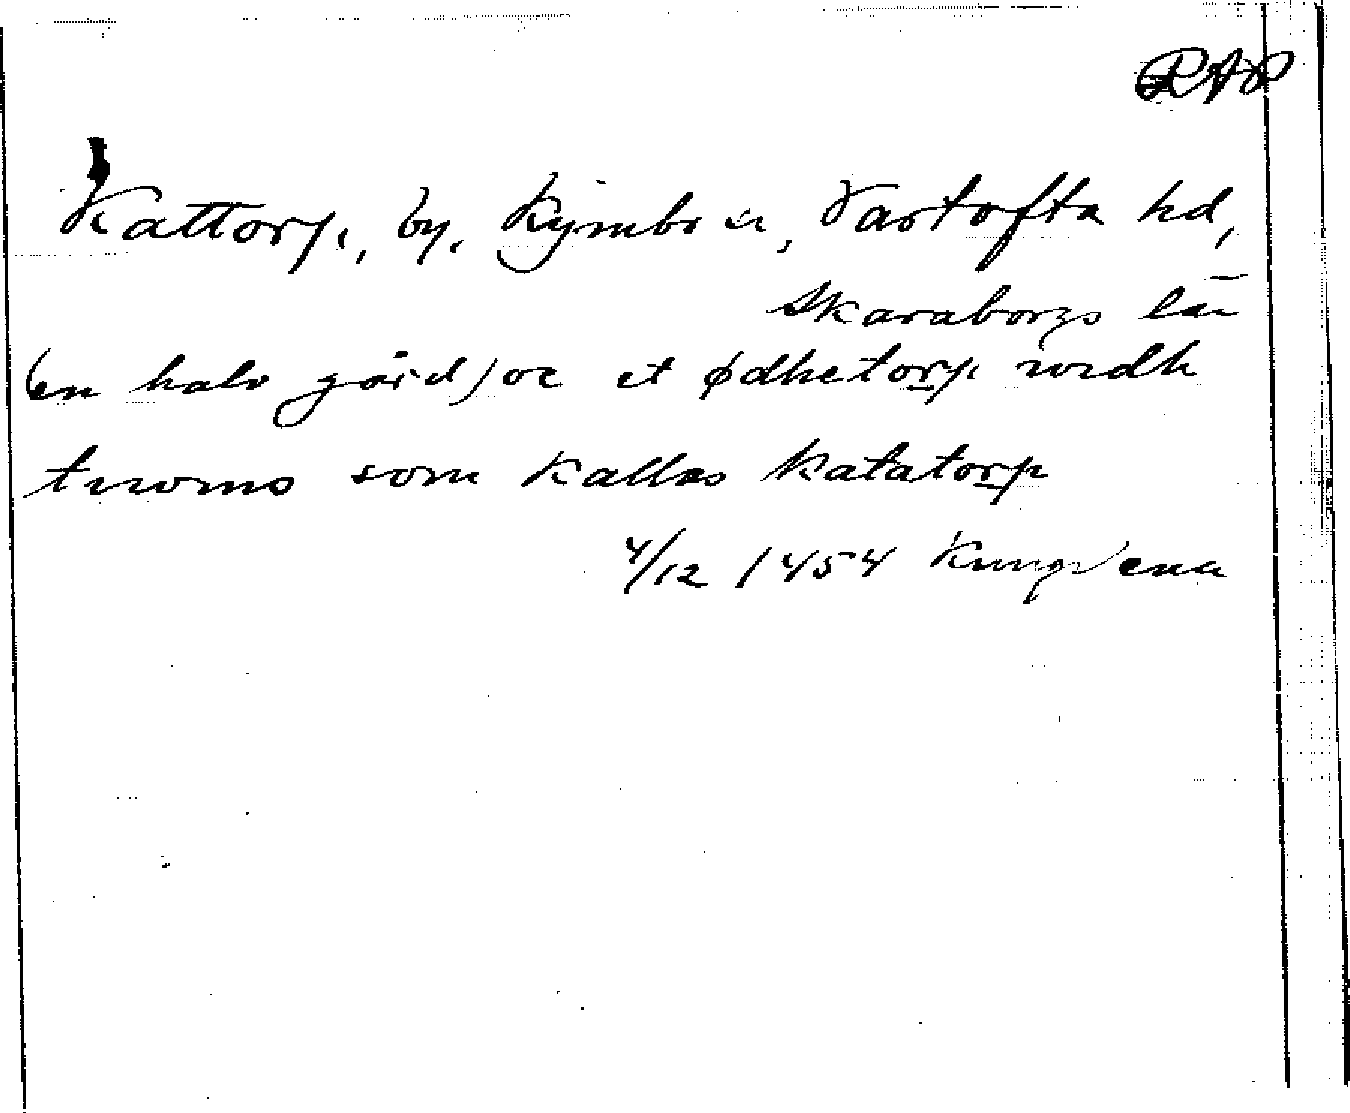 RAP
Kattorp, by, Kymbo sn, Vartofta hd,
Skaraborgs län
(en halv gård) oc et ødhetorp widh
som kallas katatorp
4/12 1454 Kungslena